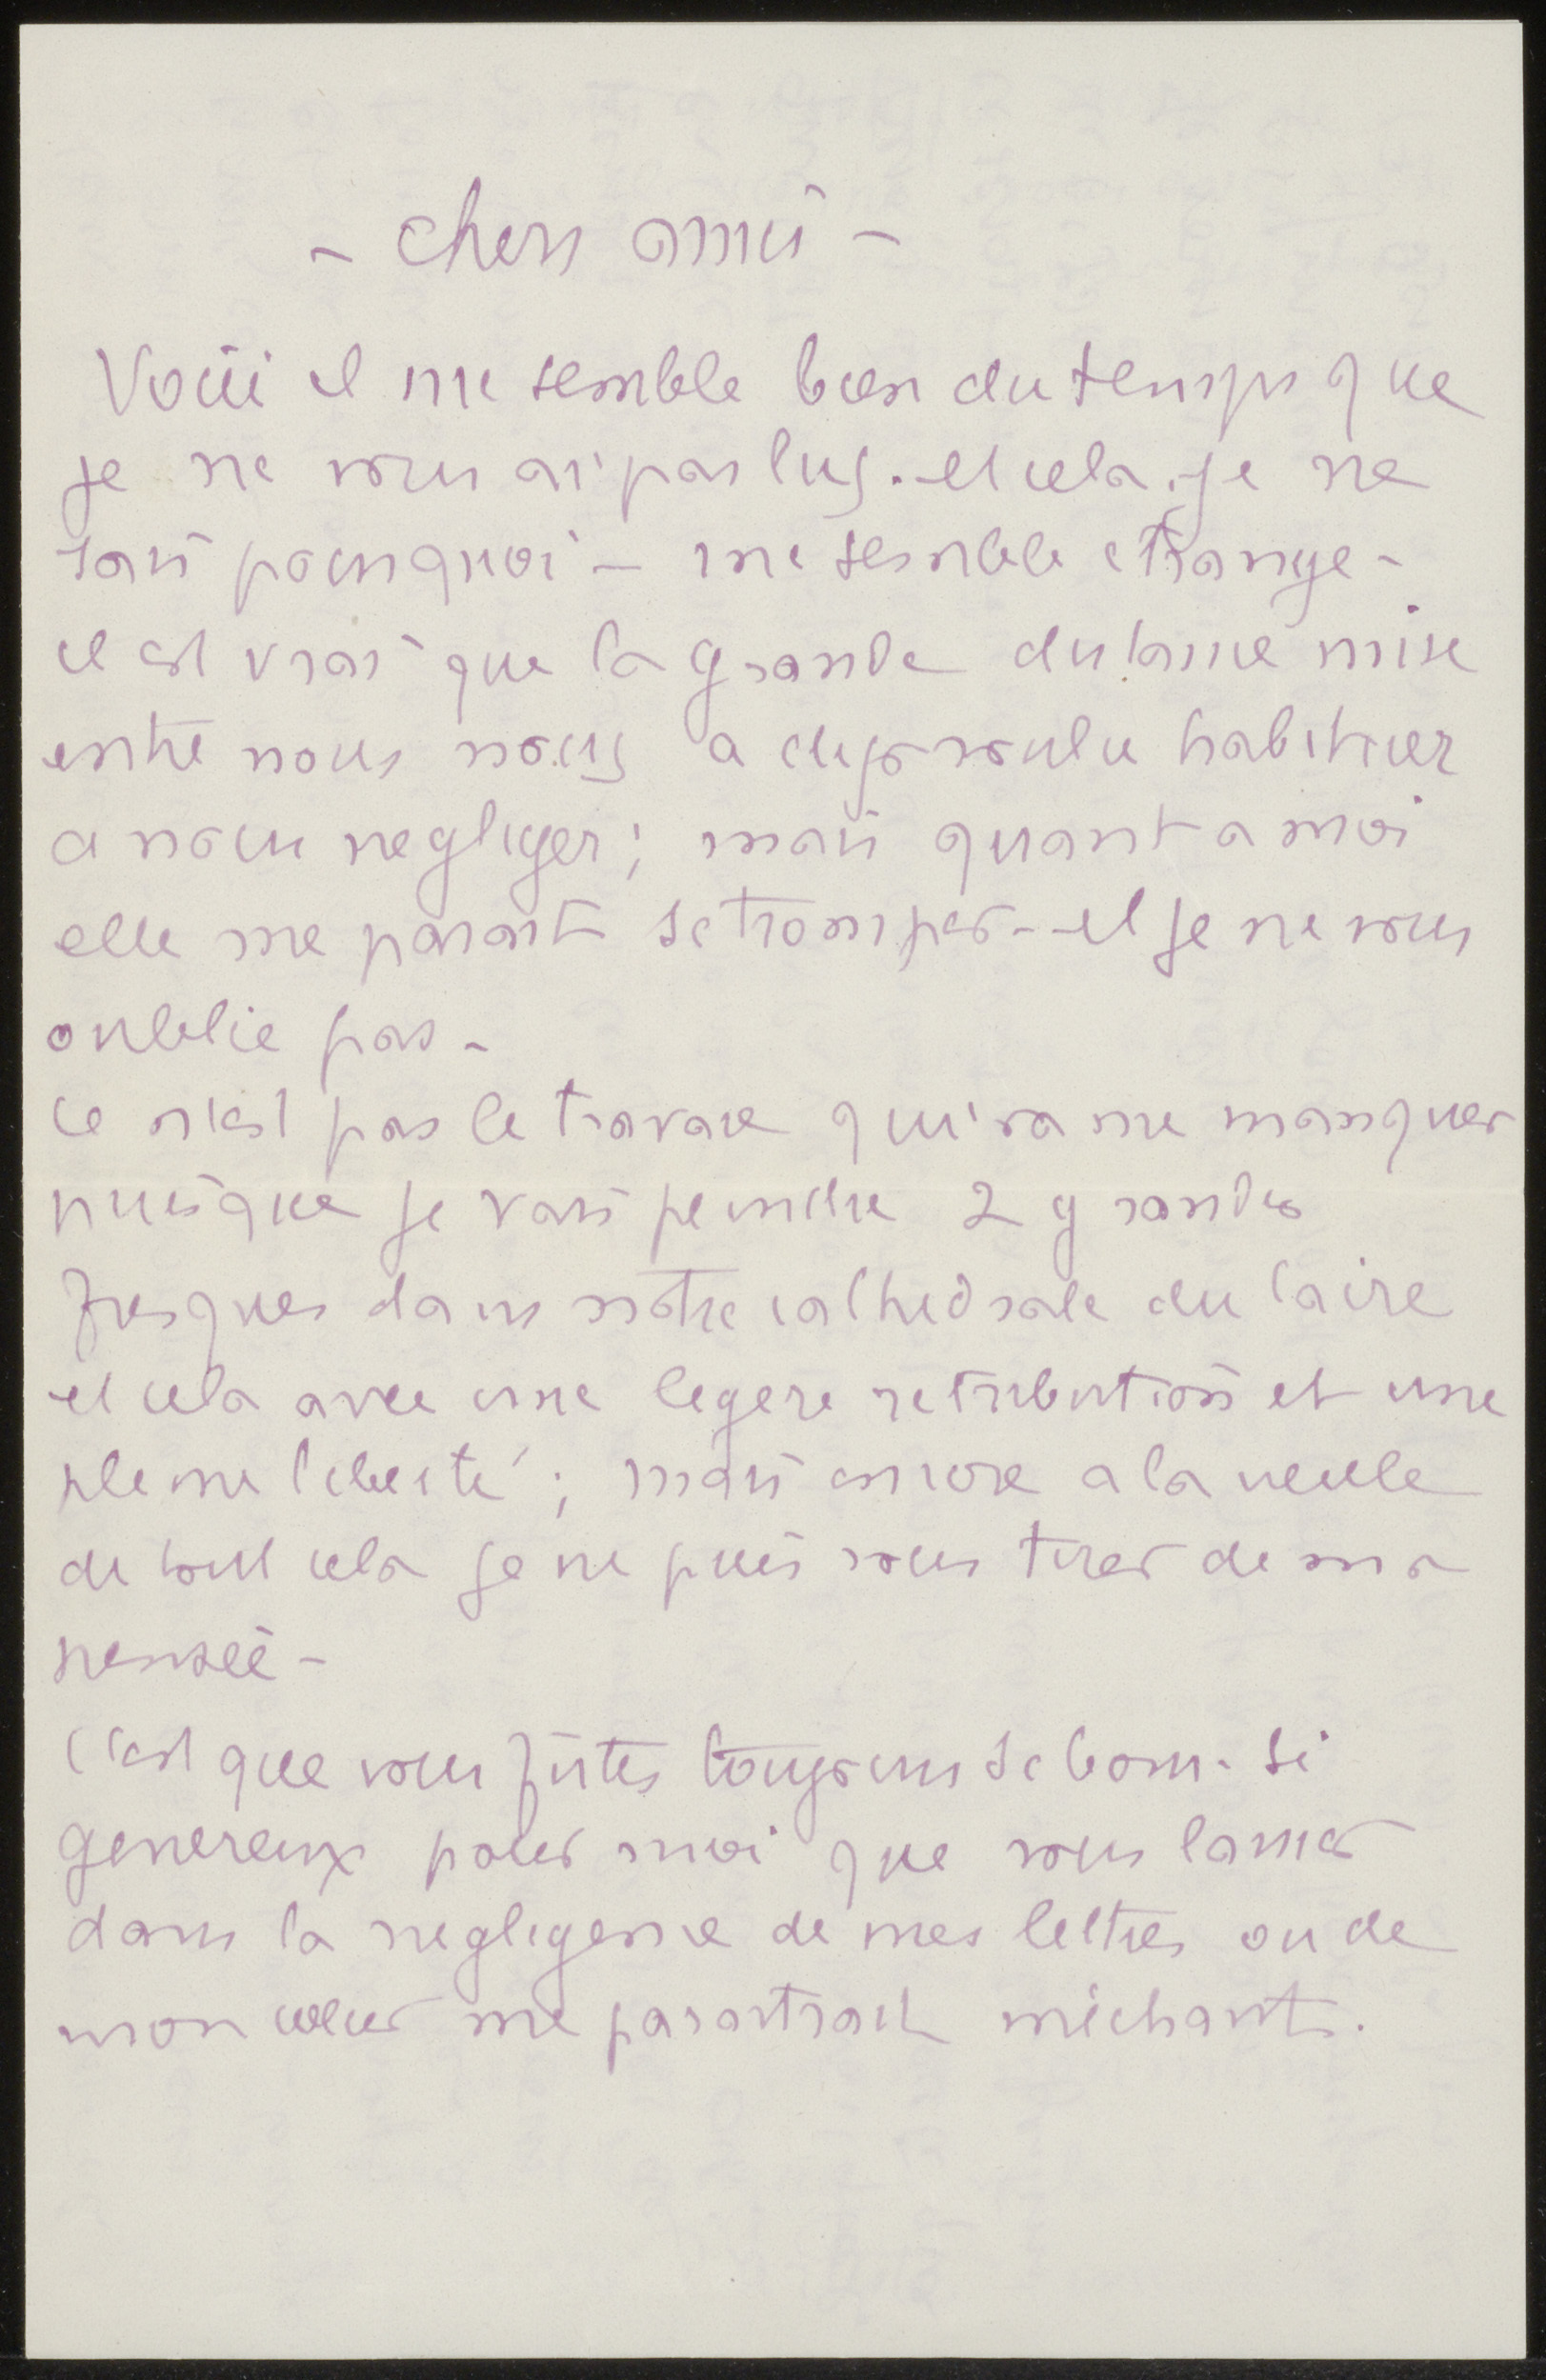 - chers amis -
Voici il me semble bien du temps que
je ne vous ai pas lus. et cela. je ne
sais pourquoi - me semble etrange -
il est vrai que la grande distance mise
entre nous nous a deja voulu habituer
a nous negliger; mais quant a moi
elle me parait se tromper - et je ne vous
oublie pas -
ce n'est pas le travail qui va me manquer
puisque je vais peindre 2 grandes
fresques dans notre cathedrale du Caire
et cela avec une legere retribution et une
pleine liberté; mais encore a la veille
de tout cela je ne puis vous tirer de ma
pensée -
C'est que vous fûtes toujours si bons. si
genereux pour moi que vous laisser
dans la negligence de mes lettres ou de
mon coeur me paraitrait méchant.